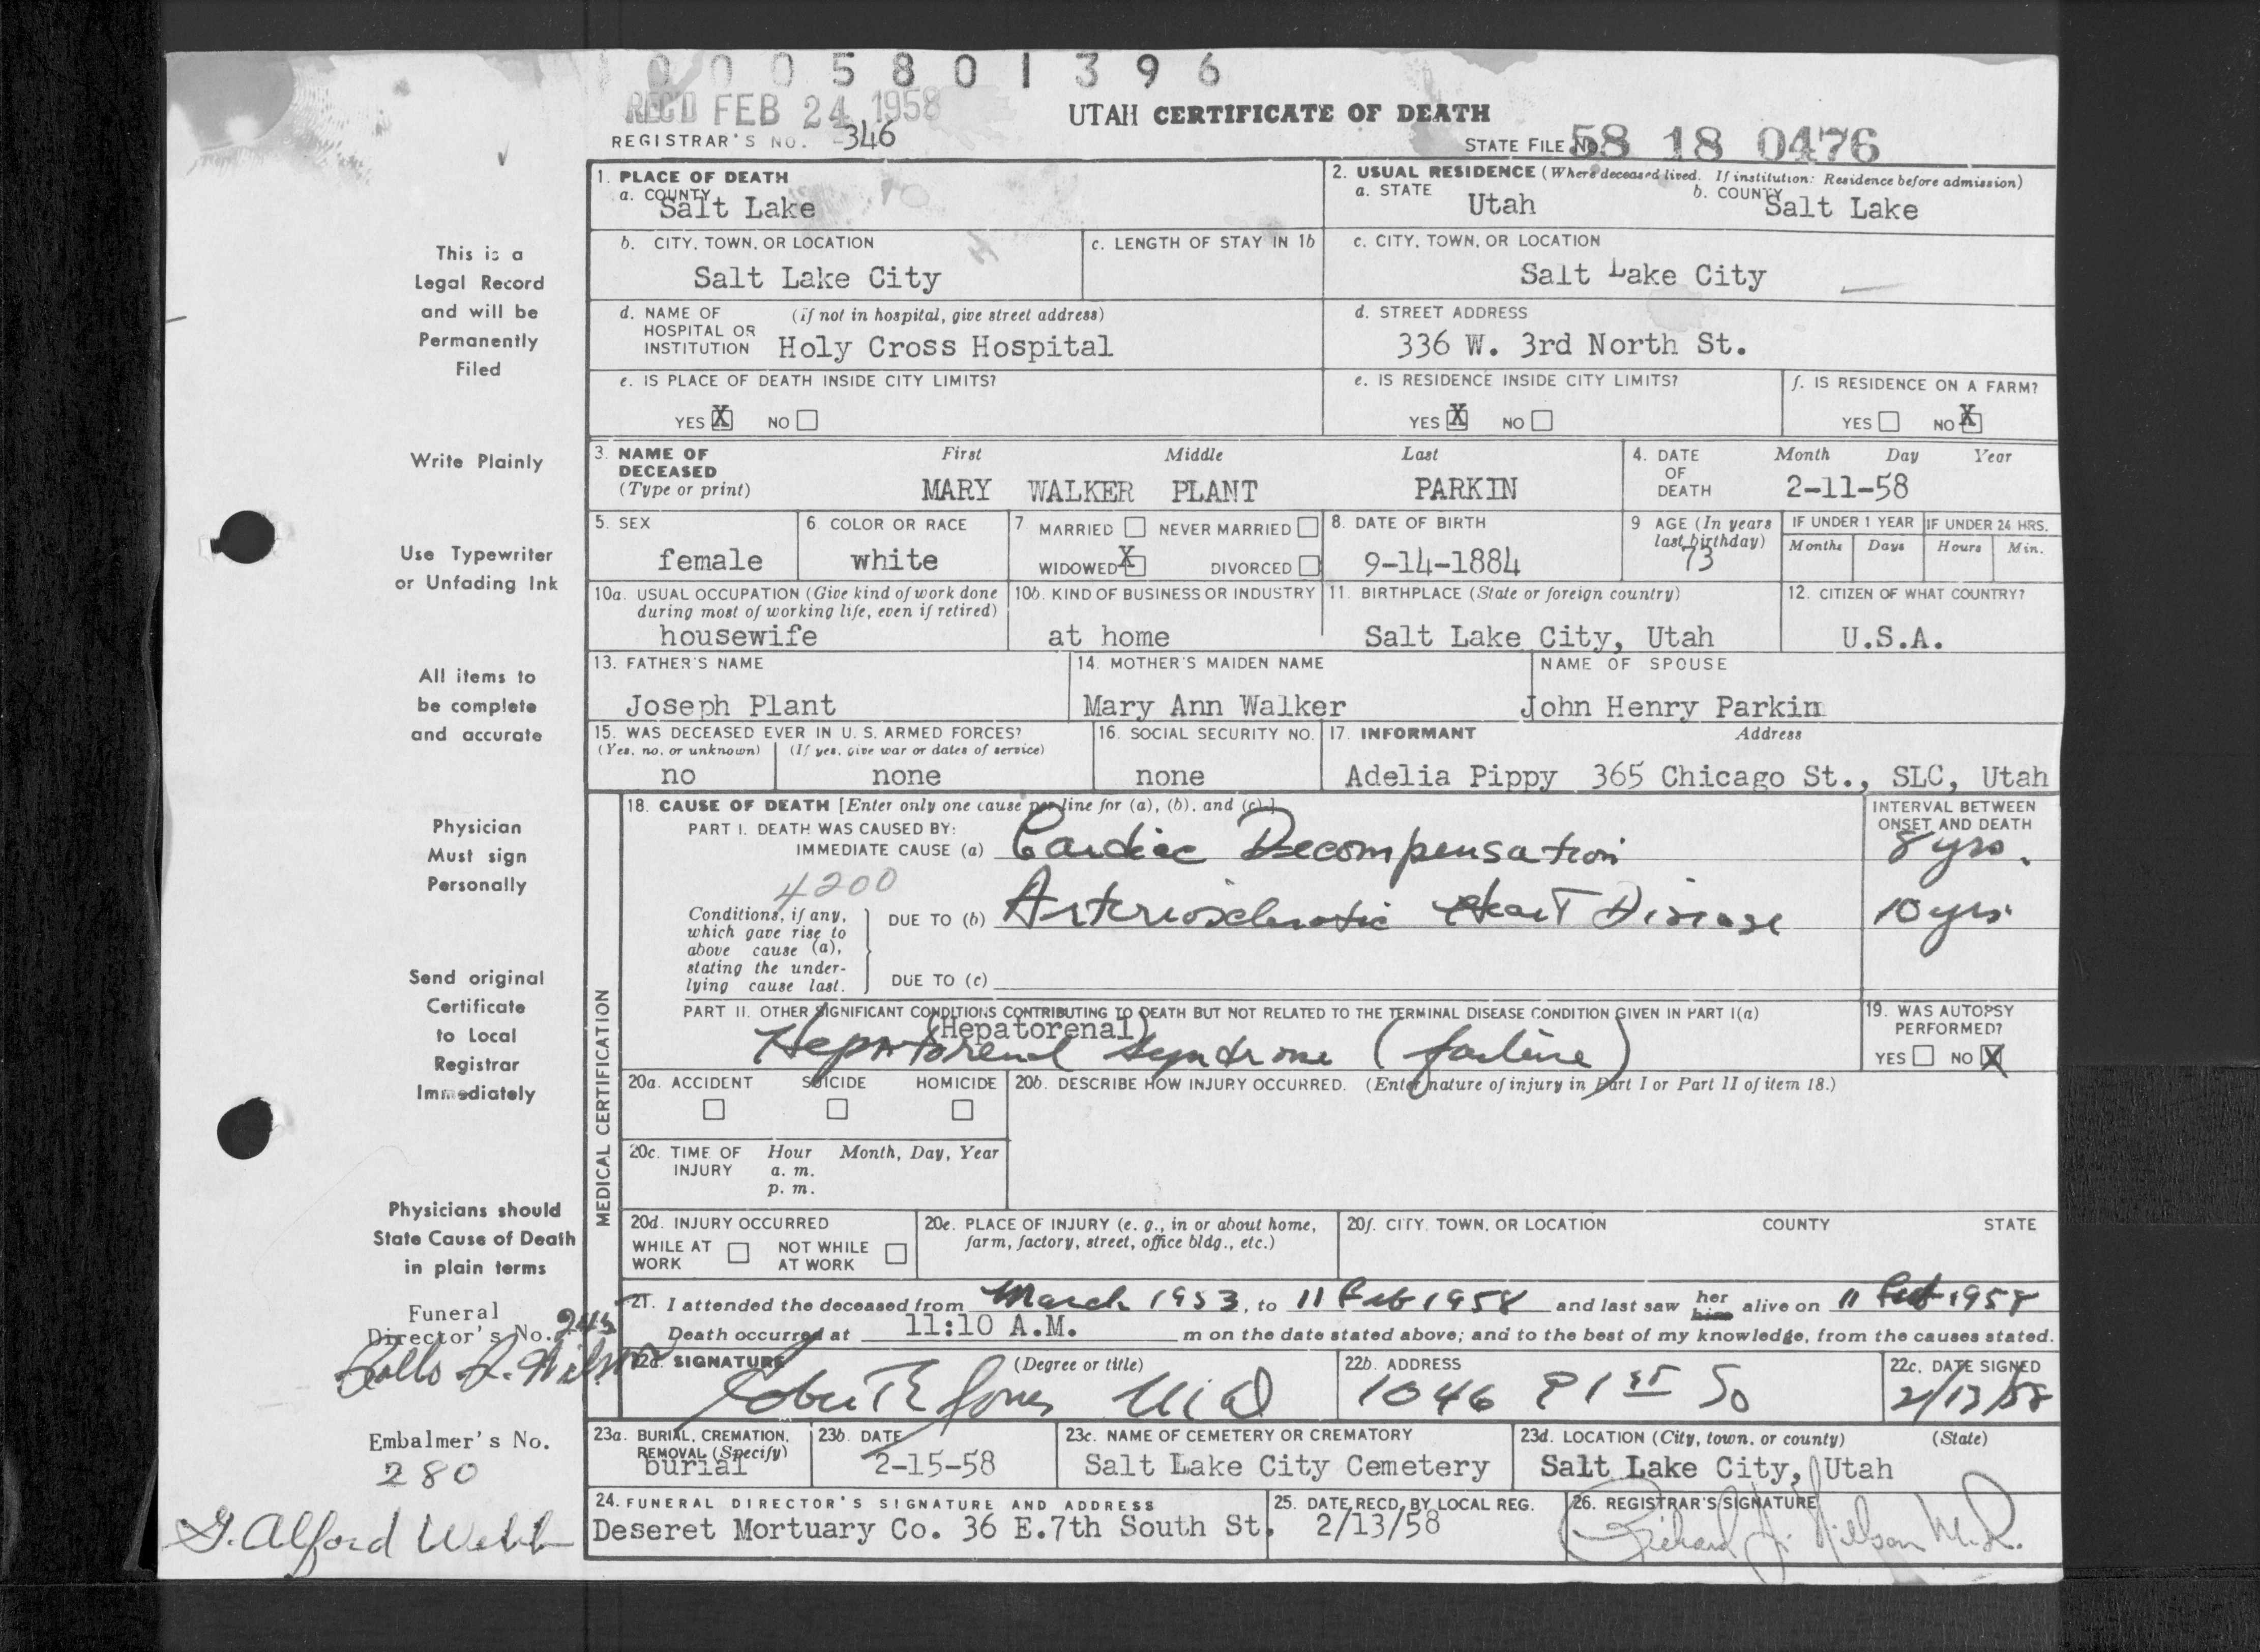 0 0 0 5 8 0 1 3 9 6
REC'D FEB 24 1958
UTAH CERTIFICATE OF DEATH
REGISTRAR'S NO. 346
STATE FILE NO. 58 18 0476
This is a
Legal Record
and will be
Permanently
Filed
Write Plainly
Use Typewriter
or Unfading Ink
All items to
be complete
and accurate
Physician
Must sign
Personally
Send original
Certificate
to Local
Registrar
Immediately
Physicians should
State Cause of Death
in plain terms
Funeral
Director's No. 245
Embalmer's No.
280
G. Alford Webb
1. PLACE OF DEATH
a. COUNTY
Salt Lake
2. USUAL RESIDENCE (Where deceased lived. If institution: Residence before admission)
a. STATE Utah b. COUNTY Salt Lake
b. CITY, TOWN, OR LOCATION
Salt Lake City
c. LENGTH OF STAY IN 1b
c. CITY, TOWN, OR LOCATION
Salt Lake City
d. NAME OF (if not in hospital, give street address)
HOSPITAL OR
INSTITUTION Holy Cross Hospital
d. STREET ADDRESS
336 W. 3rd North St.
e. IS PLACE OF DEATH INSIDE CITY LIMITS?
YES X NO
e. IS RESIDENCE INSIDE CITY LIMITS?
YES X NO
f. IS RESIDENCE ON A FARM?
YES NO X
3. NAME OF First Middle Last
DECEASED
(Type or print) MARY WALKER PLANT PARKIN
4. DATE Month Day Year
OF
DEATH 2-11-58
5. SEX
female
6. COLOR OR RACE
white
7 MARRIED NEVER MARRIED
WIDOWED X DIVORCED
8. DATE OF BIRTH
9-14-1884
9 AGE (In years
last birthday)
73
IF UNDER 1 YEAR IF UNDER 24 HRS.
Months Days Hours Min.
10a. USUAL OCCUPATION (Give kind of work done
during most of working life, even if retired)
housewife
10b. KIND OF BUSINESS OR INDUSTRY
at home
11. BIRTHPLACE (State or foreign country)
Salt Lake City, Utah
12. CITIZEN OF WHAT COUNTRY?
U.S.A.
13. FATHER'S NAME
Joseph Plant
14. MOTHER'S MAIDEN NAME
Mary Ann Walker
NAME OF SPOUSE
John Henry Parkin
15. WAS DECEASED EVER IN U. S. ARMED FORCES?
(Yes, no, or unknown) (If yes, give war or dates of service)
no none
16. SOCIAL SECURITY NO.
none
17. INFORMANT Address
Adelia Pippy 365 Chicago St., SLC, Utah
MEDICAL CERTIFICATION
18. CAUSE OF DEATH [Enter only one cause per line for (a), (b), and (c).]
PART I. DEATH WAS CAUSED BY:
IMMEDIATE CAUSE (a) Cardiac Decompensation
INTERVAL BETWEEN
ONSET AND DEATH
8 yrs.
4200
Conditions, if any,
which gave rise to
above cause (a),
stating the under-
lying cause last.
DUE TO (b) Arteriosclerotic Heart Disease 10 yrs.
DUE TO (c)
PART II. OTHER SIGNIFICANT CONDITIONS CONTRIBUTING TO DEATH BUT NOT RELATED TO THE TERMINAL DISEASE CONDITION GIVEN IN PART I(a)
(Hepatorenal)
Hepatorenal Syndrome (failure)
19. WAS AUTOPSY
PERFORMED?
YES NO X
20a. ACCIDENT SUICIDE HOMICIDE
20b. DESCRIBE HOW INJURY OCCURRED. (Enter nature of injury in Part I or Part II of item 18.)
20c. TIME OF Hour Month, Day, Year
INJURY a. m.
p. m.
20d. INJURY OCCURRED
WHILE AT NOT WHILE
WORK AT WORK
20e. PLACE OF INJURY (e. g., in or about home,
farm, factory, street, office bldg., etc.)
20f. CITY, TOWN, OR LOCATION COUNTY STATE
21. I attended the deceased from March 1953, to 11 Feb 1958 and last saw her him alive on 11 Feb 1958
Death occurred at 11:10 A.M. m on the date stated above; and to the best of my knowledge, from the causes stated.
22a. SIGNATURE (Degree or title)
Jones MD
22b. ADDRESS
1046 E 1st So
22c. DATE SIGNED
2/13/58
23a. BURIAL, CREMATION,
REMOVAL (Specify)
burial
23b. DATE
2-15-58
23c. NAME OF CEMETERY OR CREMATORY
Salt Lake City Cemetery
23d. LOCATION (City, town, or county) (State)
Salt Lake City, Utah
24. FUNERAL DIRECTOR'S SIGNATURE AND ADDRESS
Deseret Mortuary Co. 36 E.7th South St.
25. DATE RECD. BY LOCAL REG.
2/13/58
26. REGISTRAR'S SIGNATURE
Richard